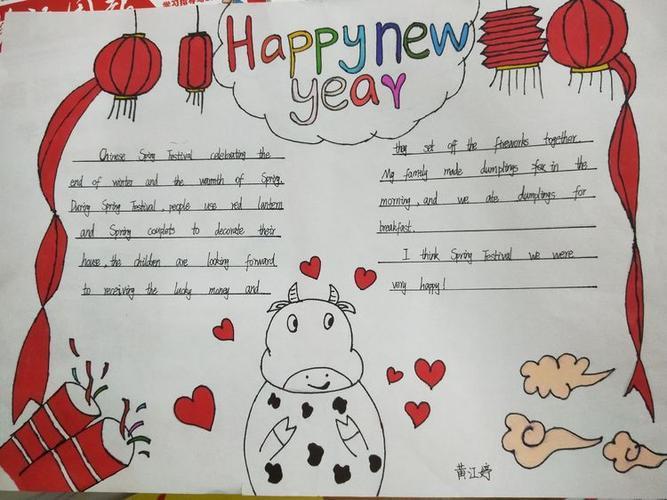 Happy new
year
Chinese Spring Festival celebrating the
end of winter and the warmth of Spring.
During Spring Festival people use red lantern
and Spring couplets to decorate their
house, the children are looking forward
to receiving the lucky money and
they set off the fireworks together.
My family made dumplings in the
morning, and we ate dumplings for
breakfast.
I think Spring Festival we were
very happy!
黄江婷